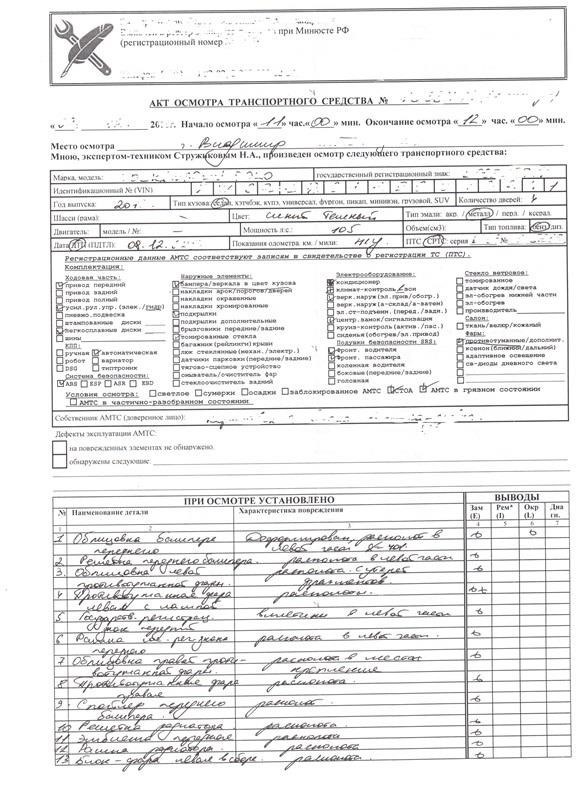 при Минюсте РФ
(регистрационный номер
АКТ ОСМОТРА ТРАНСПОРТНОГО СРЕДСТВА №
Начало осмотра « 11 » час.« 00 » мин. Окончание осмотра « 12 » час. « 00 » мин.
Место осмотра г. Владимир
Мною, экспертом-техником Стружиковым Н.А., произведен осмотр следующего транспортного средства:
Марка, модель: государственный регистрационный знак:
Идентификационный № (VIN)
Год выпуска: 201 Тип кузова седан, хэтчбэк, купэ, универсал, фургон, пикап, минивэн, грузовой, SUV Количество дверей: 4
Шасси (рама): — Цвет: синий темный Тип эмали: акр. / металл / перл. / ксерал.
Двигатель: модель / №: — Мощность л.с.: 105 Объем(см3): Тип топлива: бенз/диз.
Дата (ПДТЛ): 08.12. Показания одометра. км. / мили: н/у ПТС, СРТС: серия №
Регистрационные данные АМТС соответствуют записям в свидетельстве о регистрации ТС (ПТС).
Комплектация:
Ходовая часть:
привод передний
привод задний
привод полный
усил.рул.упр.(элек./гидр)
пневмо.подвеска
штампованные диски
Легкосплавные диски
шины
КПП:
ручная автоматическая
робот вариатор
DSG типтроник
Система безопасности:
ABS ESP ASR EBD
Наружные элементы:
бампера/зеркала в цвет кузова
накладки арок/порогов/дверей
накладки окрашенные
накладки хромированные
подкрылки
подкрылки дополнительные
брызговики передние/задние
тонированные стекла
багажник(рейлинги)крыши
люк стеклянный(механ./электр.)
датчики парковки(передние/задние)
тягово-сцепное устройство
омыватель/очиститель фар
стеклоочиститель задний
Электрооборудование:
кондиционер
климат-контроль 2 зон
зерк.наруж(эл.прив/обогр.)
зерк.наруж(а-склад/а-затен)
эл.ст-подъемн.(перед./задн.)
центр.замок/сигнализация
круиз-контроль(актив./пас.)
сиденья(обогрев/эл.привод)
Подушки безопасности SRS:
фронт. водителя
фронт. пассажира
коленная водителя
боковые(передние/задние)
головная
Стекло ветровое:
тонированное
датчик дождя/света
эл-обогрев нижней части
эл-обогрев
производитель
Салон:
ткань/велюр/кожаный
Фары:
противотуманные/дополнит.
ксенон(ближний/дальний)
адаптивное освещение
св-диоды дневного света
Условия осмотра: светлое сумерки осадки заблокированное АМТС СТОА АМТС в грязном состоянии
АМТС в частично-разобранном состоянии
Собственник АМТС (доверенное лицо):
Дефекты эксплуатации АМТС:
на поврежденных элементах не обнаружено.
обнаружены следующие:
ПРИ ОСМОТРЕ УСТАНОВЛЕНО ВЫВОДЫ
№ Наименование детали Характеристика повреждения Зам (E) Рем* (I) Окр (L)
1 2 3 4 5 6 7
1 Облицовка бампера Деформирован, расколот в
переднего левой части
2 Решетка переднего бампера. расколота в левой части
3. Облицовка левой расколота с утратой
противотуманной фары. фрагментов.
4 Противотуманная фара расколота.
левая с лампой
5 Государств. регистрац. вмятины в левой части
знак передний
6 Рамка гос. рег. знака расколота в левой части.
передняя
7 Облицовка правой проти- расколота в местах
вотуманной фары. крепления
8 Противотуманная фара расколота.
правая
9. Спойлер переднего расколот.
бампера.
10 Решетка радиатора расколота.
11 Эмблема передняя расколота
12 Рамка радиатора. расколота
13 Блок-фара левая в сборе. расколота.